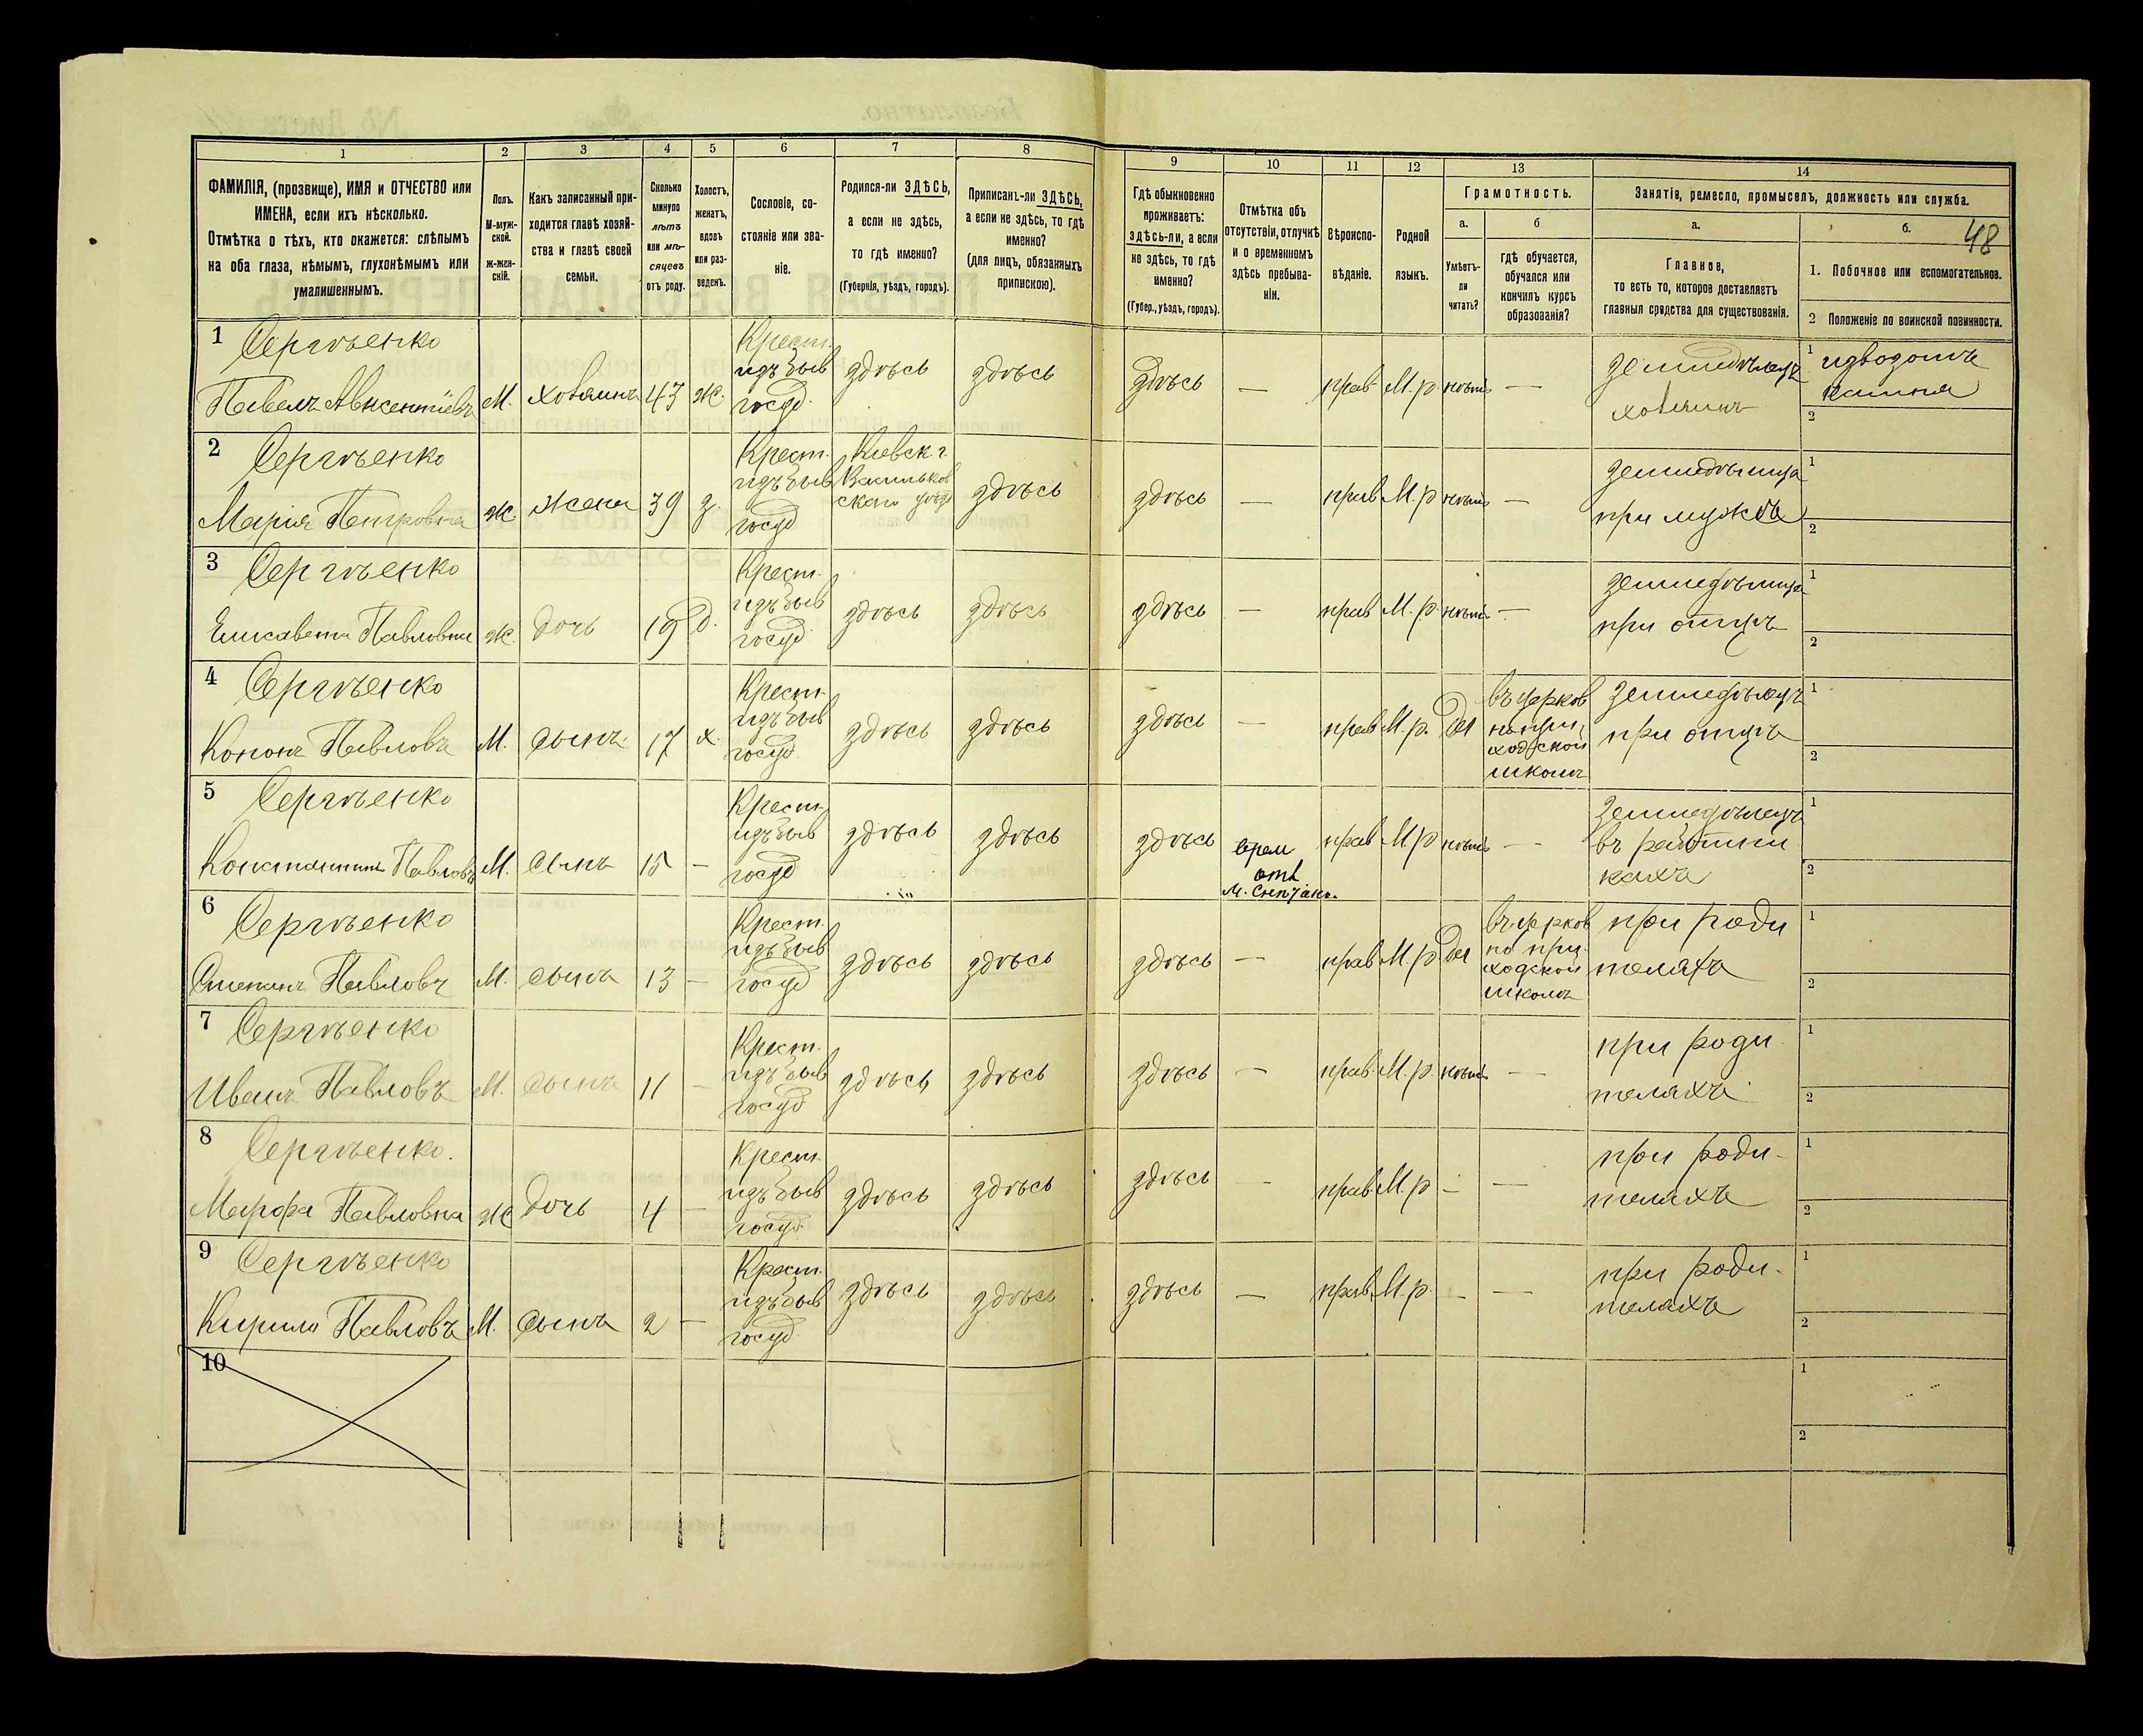 48
1 2 3 4 5 6 7 8 9 10 11 12 13 14
ФАМИЛІЯ, (прозвище), ИМЯ и ОТЧЕСТВО или
ИМЕНА, если ихъ нѣсколько.
Отмѣтка о тѣхъ, кто окажется: слѣпымъ
на оба глаза, нѣмымъ, глухонѣмымъ или
умалишеннымъ.
Полъ.
М-муж-
ской.
ж-жен-
скій.
Какъ записанный при-
ходится главѣ хозяй-
ства и главѣ своей
семьи.
Сколько
минуло
лѣтъ
или мѣ-
сяцевъ
отъ роду.
Холостъ,
женатъ,
вдовъ
или раз-
веденъ.
Сословіе, со-
стояніе или зва-
ніе.
Родился-ли ЗДѢСЬ,
а если не здѣсь,
то гдѣ именно?
(Губернія, уѣздъ, городъ).
Приписанъ-ли ЗДѢСЬ,
а если не здѣсь, то гдѣ
именно?
(для лицъ, обязанныхъ
припискою).
Гдѣ обыкновенно
проживаетъ:
здѣсь-ли, а если
не здѣсь, то гдѣ
именно?
(Губер., уѣздъ, городъ).
Отмѣтка объ
отсутствіи, отлучкѣ
и о временномъ
здѣсь пребыва-
ніи.
Вѣроиспо-
вѣданіе.
Родной
языкъ.
Грамотность.
а.
Умѣетъ-
ли
читать?
б
гдѣ обучается,
обучался или
кончилъ курсъ
образованія?
Занятіе, ремесло, промыселъ, должность или служба.
а.
Главное,
то есть то, которое доставляетъ
главныя средства для существованія.
б.
1. Побочное или вспомогательное.
2 Положеніе по воинской повинности.
1 Сергѣенко
Павелъ Авксентіевъ М. хозяинъ 43 ж.
Крест.
изъ быв
госуд.
здѣсь здѣсь здѣсь — прав М.р. нѣтъ —
земледѣлецъ
хозяинъ
1 изводомъ
камня
2
2 Сергѣенко
Марія Петровна ж. жена 39 з.
Крест.
изъ быв
госуд
Кіевск. г.
Васильков
скаго уѣзд
здѣсь здѣсь — прав М.р нѣтъ —
земледѣлица
при мужѣ
1
2
3 Сергѣенко
Елисавета Павловна ж. дочь 19 д.
Крест.
изъ быв
госуд
здѣсь здѣсь здѣсь — прав М.р. нѣтъ —
земледѣлица
при отцѣ
1
2
4 Сергѣенко
Кононъ Павловъ М. сынъ 17 х.
Крест.
изъ быв
госуд.
здѣсь здѣсь здѣсь — прав М.р. да
въ церков
но при
ходской
школѣ
земледѣлецъ
при отцѣ
1
2
5 Сергѣенко
Константинъ Павловъ М. сынъ 15 —
Крест.
изъ быв
госуд
здѣсь здѣсь здѣсь
врем
отл
прав М.р нѣтъ —
земледѣлецъ
въ работни
кахъ
1
2
6 Сергѣенко
Степанъ Павловъ М. сынъ 13 —
Крест.
изъ быв
госуд
здѣсь здѣсь здѣсь — прав М.р да
въ церков
но при-
ходской
школѣ
при роди
теляхъ
1
2
7 Сергѣенко
Иванъ Павловъ М. сынъ 11 —
Крест.
изъ быв
госуд
здѣсь здѣсь здѣсь — прав. М.р. нѣтъ —
при роди
теляхъ
1
2
8 Сергѣенко.
Марфа Павловна ж дочь 4 —
Крест.
изъ быв
госуд.
здѣсь здѣсь здѣсь — прав. М.р — —
при роди-
теляхъ
1
2
9 Сергѣенко
Кирилъ Павловъ М. сынъ 2 —
Крест.
изъ быв
госуд.
здѣсь здѣсь здѣсь — прав. М.р. — —
при роди-
теляхъ
1
2
10
1
2